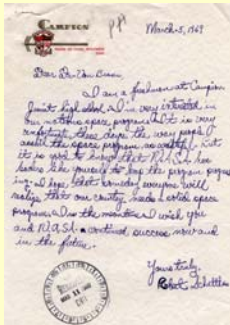 CAMPION
March 5, 1969
Dear Dr. Von Braun,
I am a freshman at Campion
Jesuit high school. I'm very interested in
our nation's space programs. It is very
unfortunate these days the way people
assail the space program, as wasteful. Yet
it is good to know that NASA has
leaders like yourself to keep the program progress
ing. I hope that someday everyone will
realize that our country needs a solid space
program. In the meantime I wish you
and NASA continued success now and
in the future.
Yours truly,
Robert